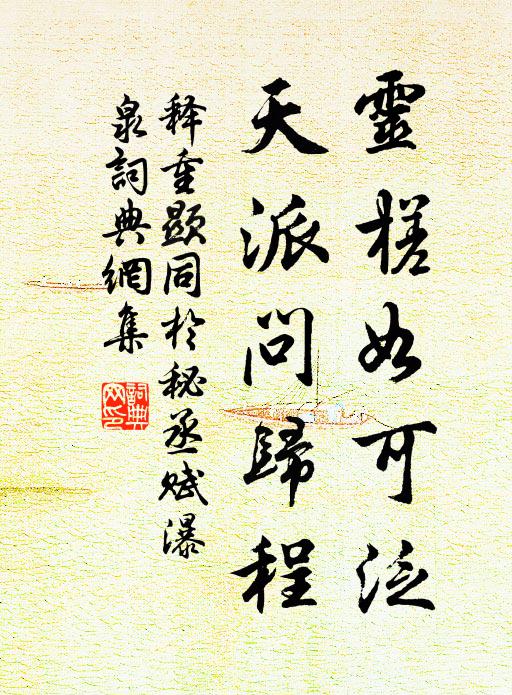 靈槎如可泛
天派問歸程
释重顯同於秘丞赋瀑
泉詞典網集
詞典
网印